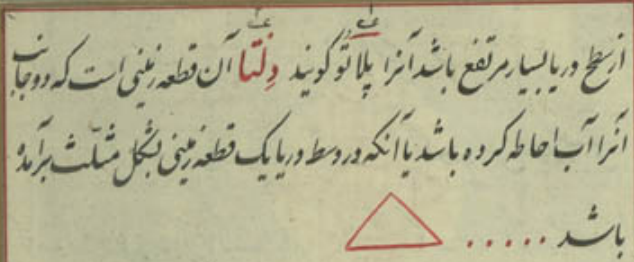 از سطح دریا بسیار مرتفع باشد آنرا پلاتو گویند دِلتا آن قطعه زمینی است که دو جانب
آنرا آب احاطه کرده باشد یا آنکه در وسط دریا یک قطعه زمینی بشکل مثلّث برآمده
باشد . . . . . .